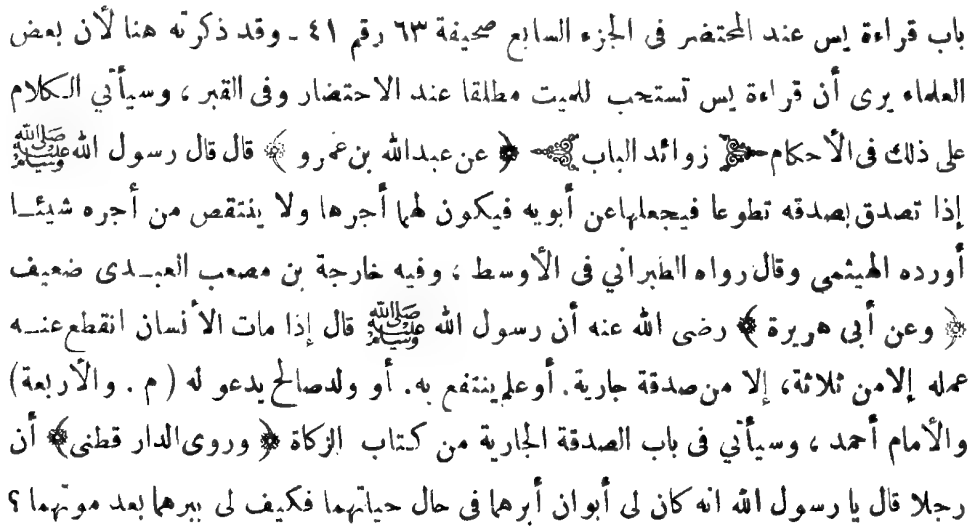 باب قراءة يس عند المحتضر فى الجزء السابع صحيفة ٦٣ رقم ٤١ ـ وقد ذكرته هنا لأن بعض
العلماء يرى أن قراءة يس تستحب للميت مطلقا عند الاحتضار وفى القبر ، وسيأتي الكلام
على ذلك فى الأحكام زوائد الباب ﴿ عن عبدالله بن عمرو ﴾ قال قال رسول الله ﷺ
إذا تصدق بصدقه تطوعا فيجعلها عن أبويه فيكون لهما أجرها ولا ينتقص من أجره شيئا
أورده الهيثمي وقال رواه الطبراني فى الأوسط ، وفيه خارجة بن مصعب العبدى ضعيف
﴿ وعن أبى هريرة ﴾ رضى الله عنه أن رسول الله ﷺ قال إذا مات الأنسان انقطع عنه
عمله إلا من ثلاثة، إلا من صدقة جارية. أو علم ينتفع به. أو ولد صالح يدعو له ( م . والأربعة )
والأمام أحمد ، وسيأتي فى باب الصدقة الجارية من كتاب الزكاة ﴿ وروى الدار قطنى ﴾ أن
رجلا قال يا رسول الله انه كان لى أبوان أبرهما فى حال حياتهما فكيف لى ببرهما بعد موتهما ؟